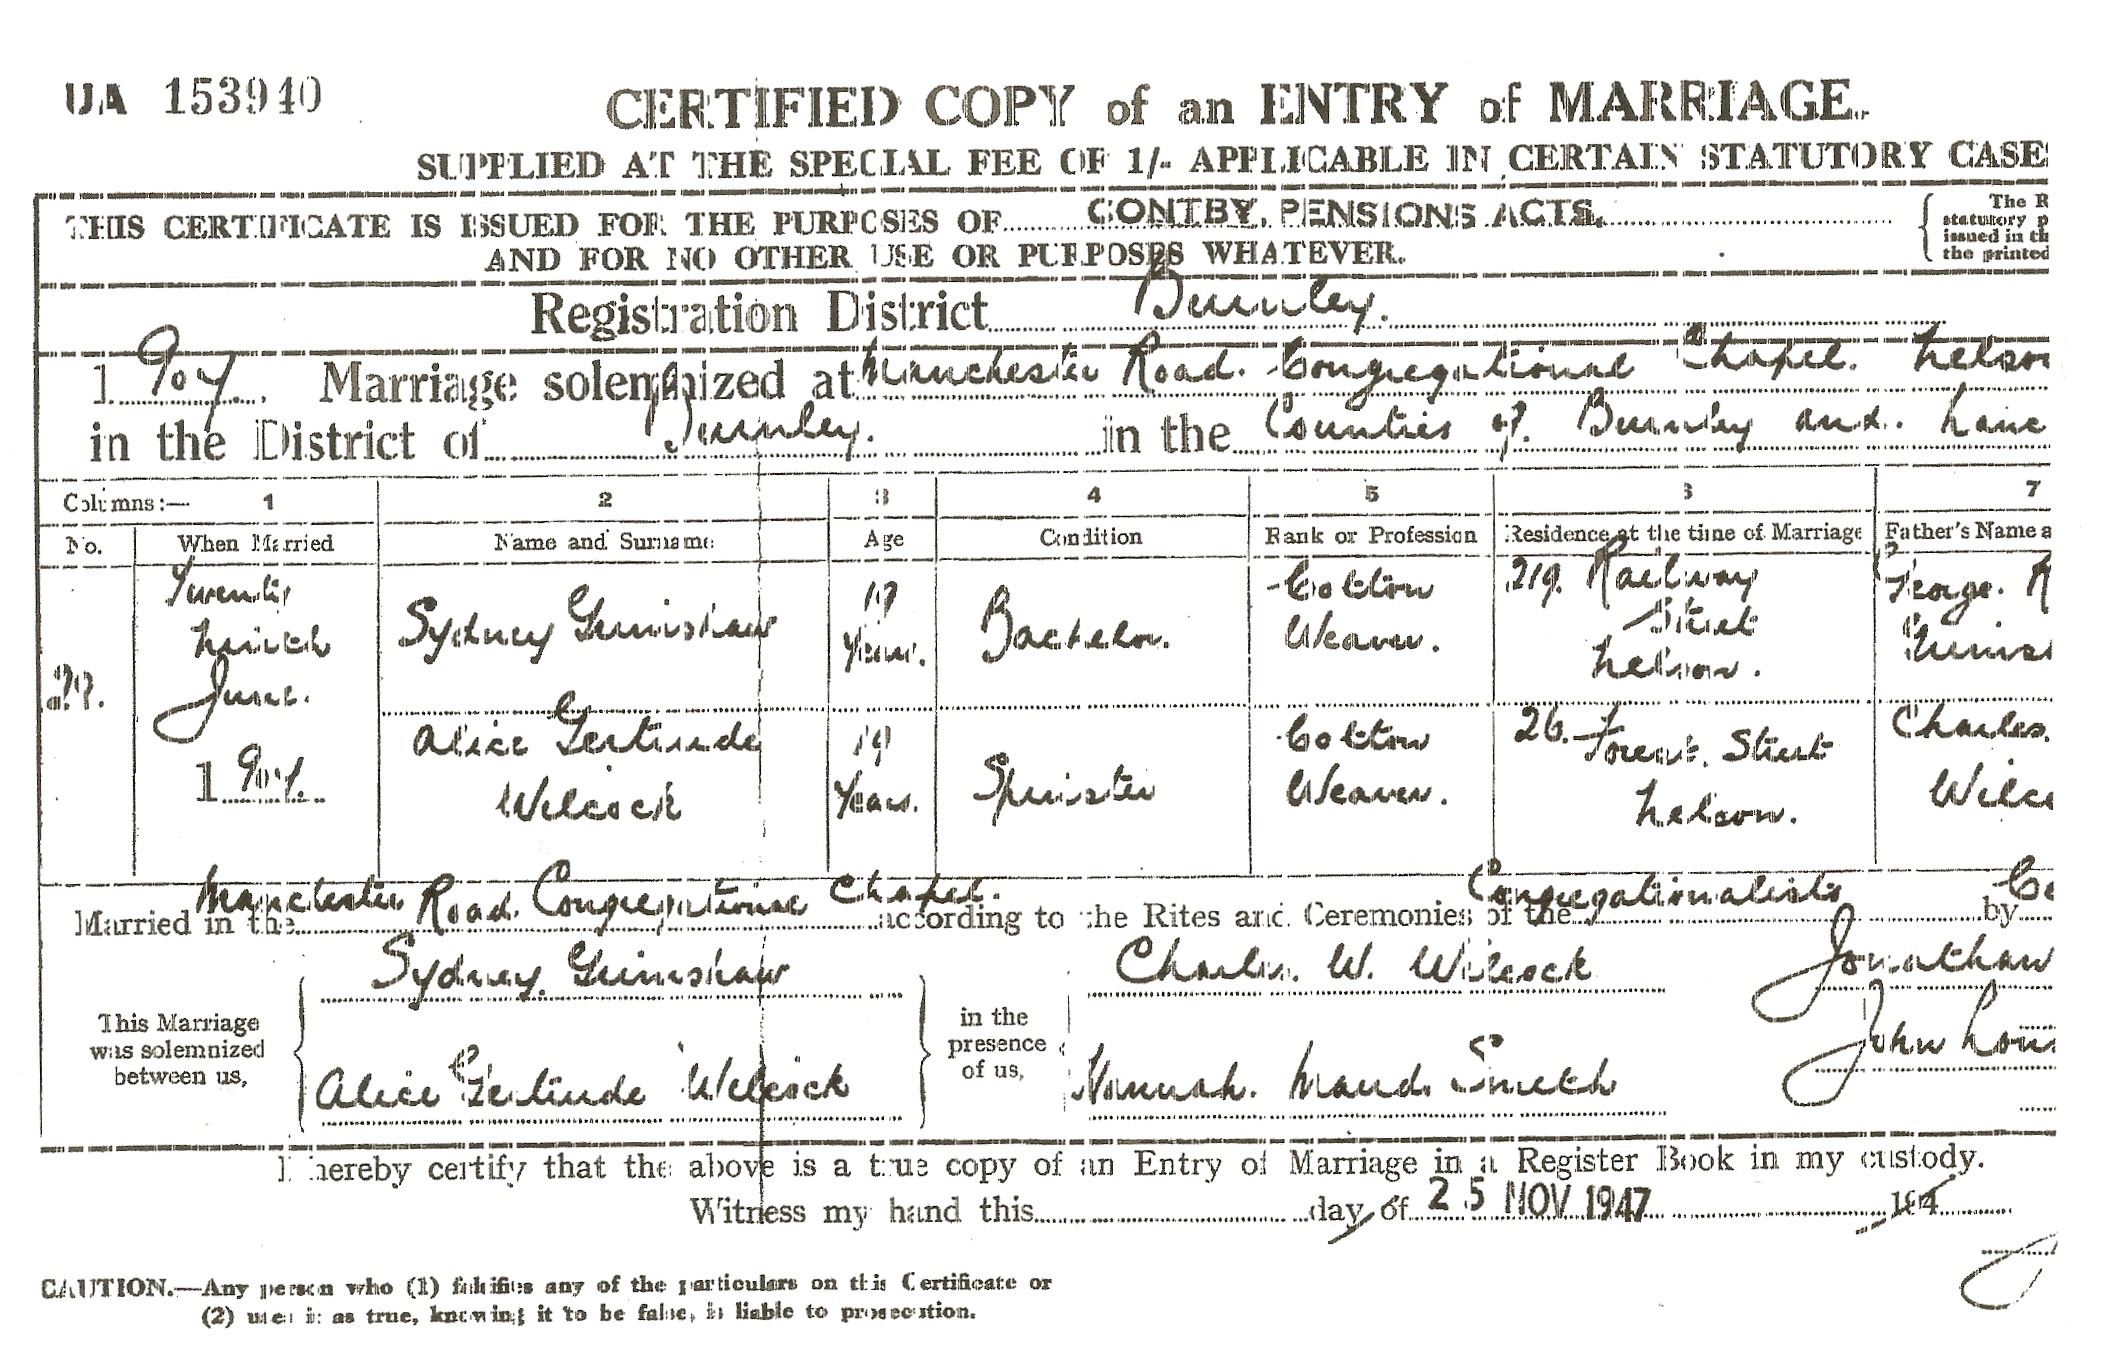 UA 153940
CERTIFIED COPY of an ENTRY of MARRIAGE.
SUPPLIED AT THE SPECIAL FEE OF 1/- APPLICABLE IN CERTAIN STATUTORY CASE
THIS CERTIFICATE IS ISSUED FOR THE PURPOSES OF CONTBY. PENSIONS ACTS.
AND FOR NO OTHER USE OR PURPOSES WHATEVER.
The R
statutory p
issued in th
the printed
Registration District Burnley.
1 907. Marriage solemnized at Manchester Road. Congregational Chapel. Nelson
in the District of Burnley. in the Counties of. Burnley and. Lanc
Columns:— 1 2 3 4 5 6 7
No. When Married Name and Surname Age Condition Rank or Profession Residence at the time of Marriage Father's Name a
Twenty
Ninth
June.
1 907.
Sydney Grimshaw
Years.
Bachelor.
Cotton
Weaver.
219. Railway
Street
Nelson.
George. R
Grimsh
Alice Gertrude
Wilcock
19
Years.
Spinster
Cotton
Weaver.
26. Forest. Street
Nelson.
Charles.
Wilco
Married in the Manchester Road. Congregational Chapel. according to the Rites and Ceremonies of the Congregationalists by Ce
This Marriage
was solemnized
between us,
Sydney. Grimshaw
Alice Gertrude Wilcock
in the
presence
of us,
Charles. W. Wilcock
Hannah. Maud. Smith
Jonathan
John
I hereby certify that the above is a true copy of an Entry of Marriage in a Register Book in my custody.
Witness my hand this day of 25 NOV 1947 194
CAUTION.—Any person who (1) falsifies any of the particulars on this Certificate or
(2) uses it as true, knowing it to be false, is liable to prosecution.